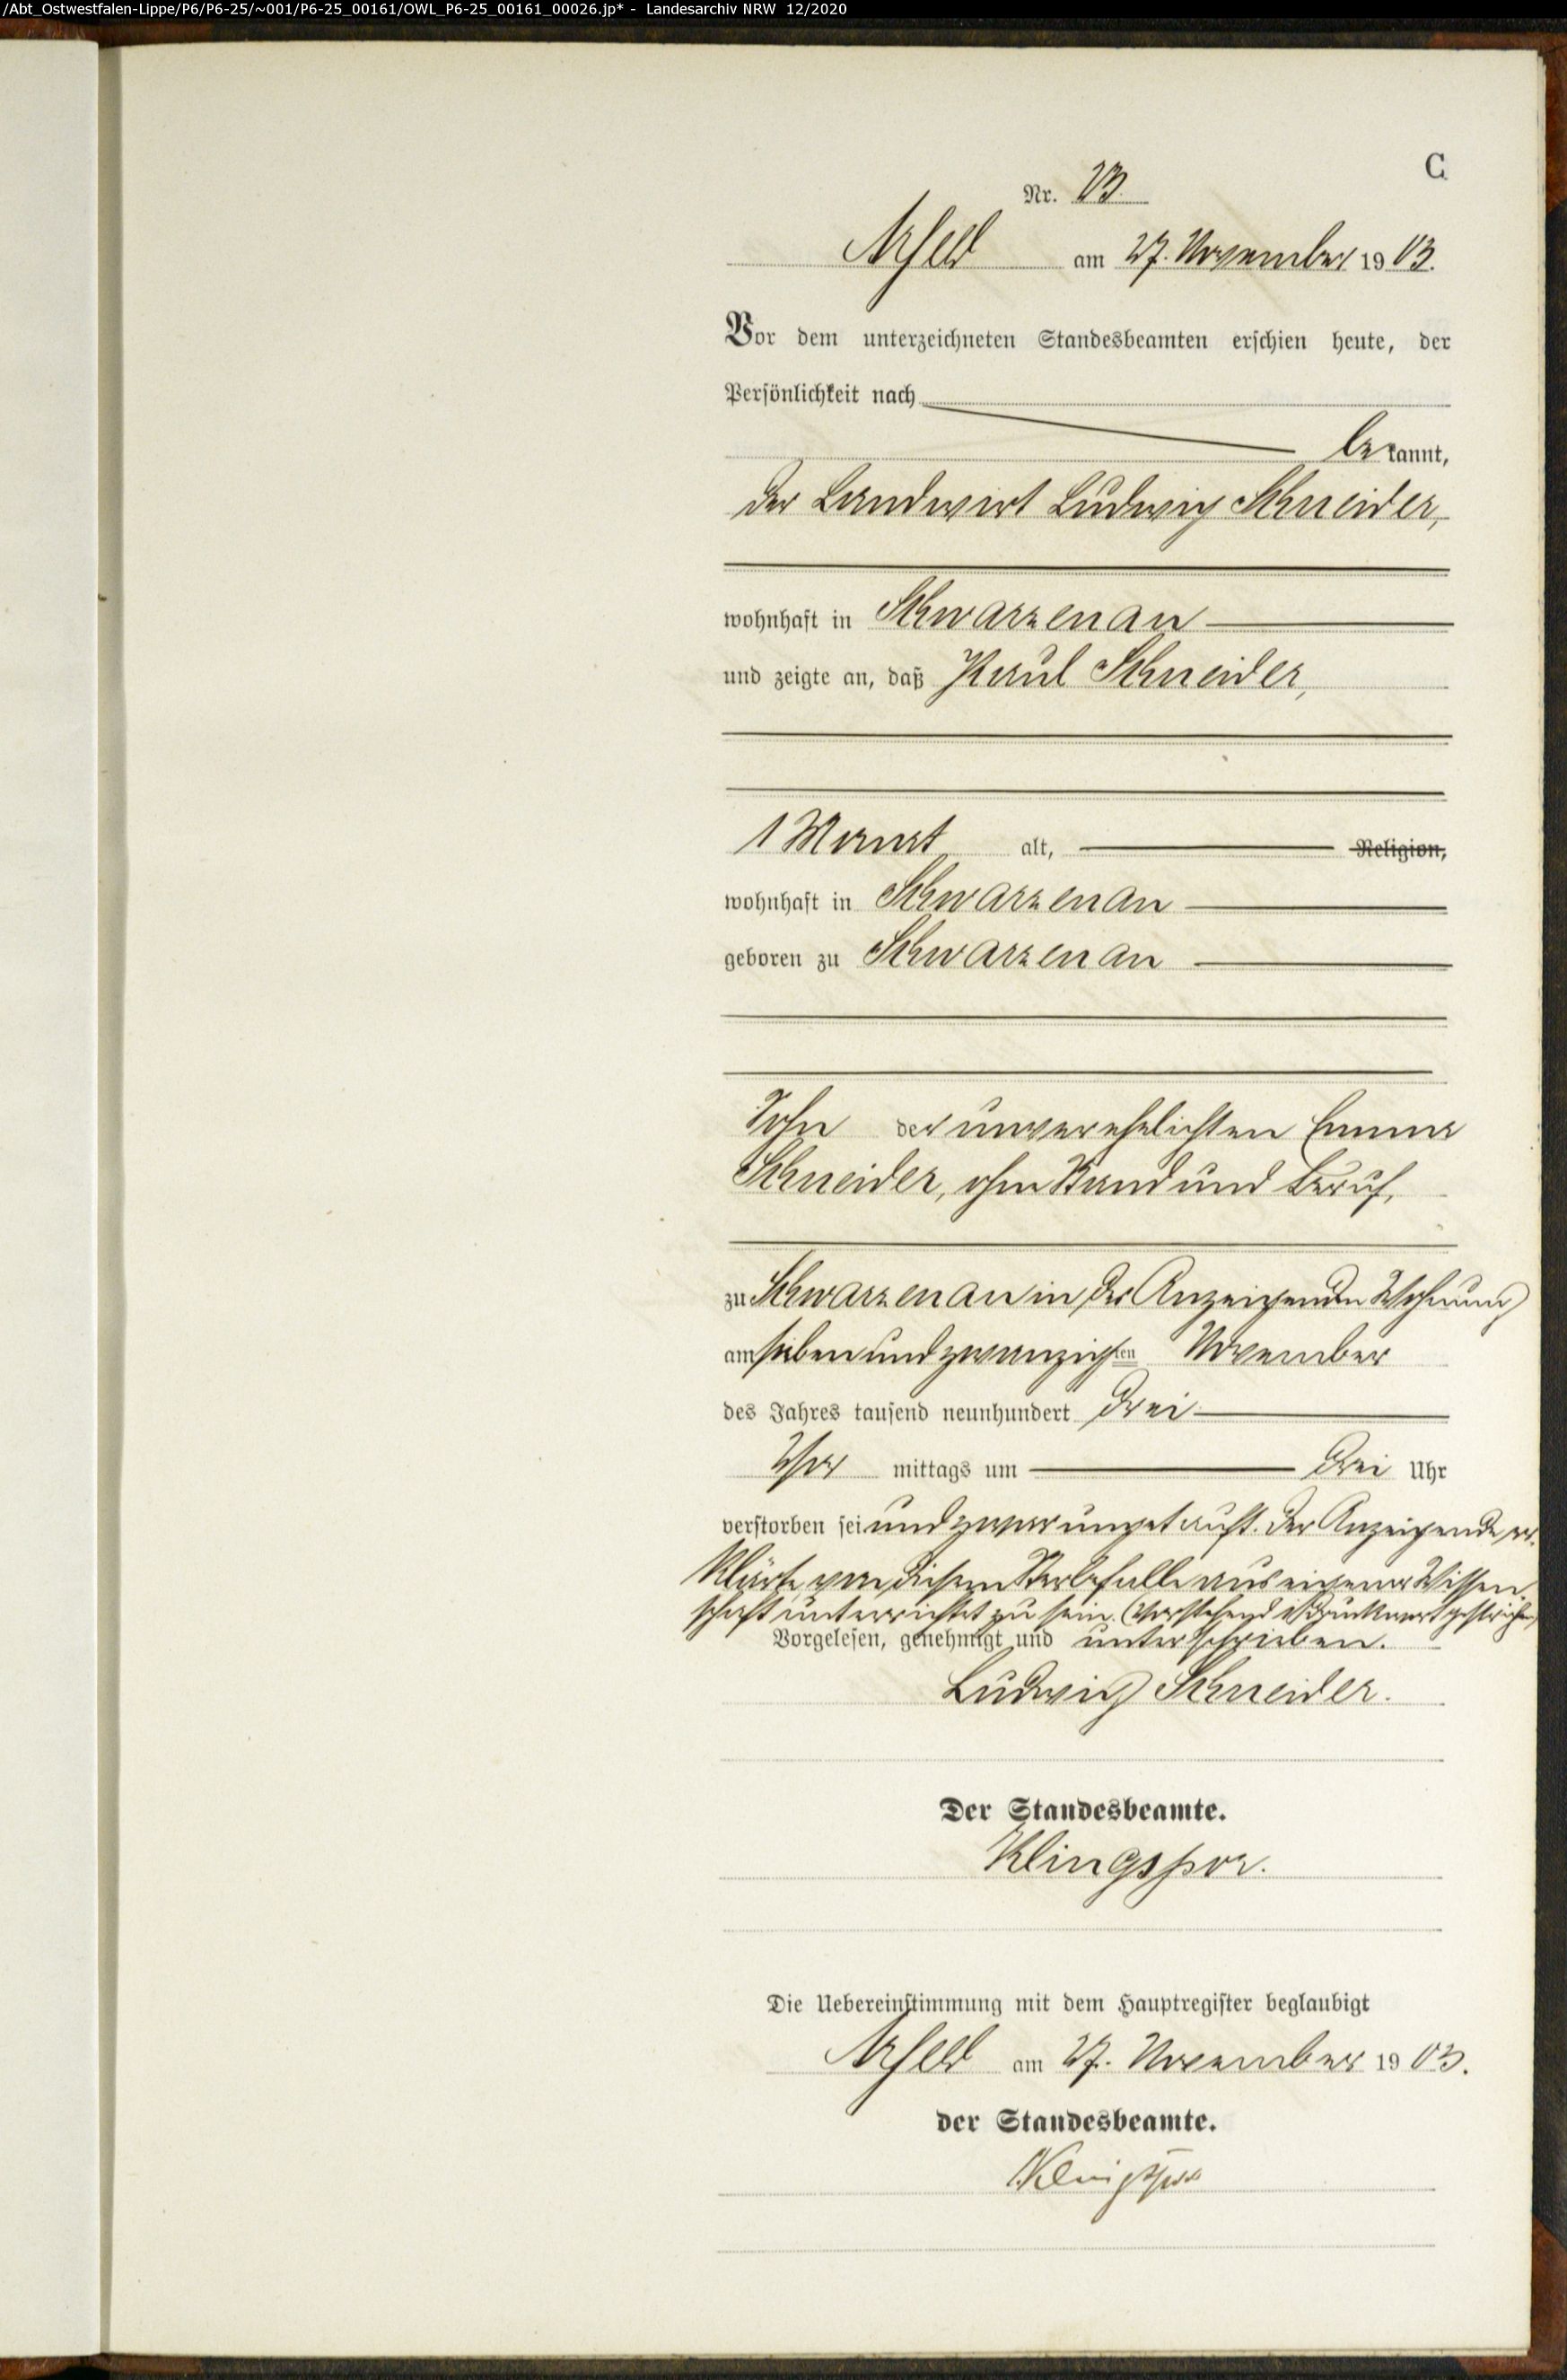 /Abt_Ostwestfalen-Lippe/P6/P6-25/~001/P6-25_00161/OWL_P6-25_00161_00026.jp* - Landesarchiv NRW 12/2020
C
Nr. 23.
Arfeld am 27. November 1903.
Vor dem unterzeichneten Standesbeamten erschien heute, der
Persönlichkeit nach
bekannt,
der Landwirt Ludwig Schneider,
wohnhaft in Schwarzenau
und zeigte an, daß Paul Schneider,
1 Monat alt, Religion,
wohnhaft in Schwarzenau
geboren zu Schwarzenau
Sohn der unverehelichten Emma
Schneider, ohne Stand und Beruf,
zu Schwarzenau in des Anzeigenden Wohnung
am siebenundzwanzigsten November
des Jahres tausend neunhundert drei
Vor mittags um drei Uhr
verstorben sei und zwar ungetauft. Der Anzeigende er-
klärte von diesem Sterbefalle aus eigener Wissen-
schaft unterrichtet zu sein. (Vorstehend 1 Druckwort gestrichen)
Vorgelesen, genehmigt und unterschrieben.
Ludwig Schneider.
Der Standesbeamte.
Klingspor.
Die Uebereinstimmung mit dem Hauptregister beglaubigt
Arfeld am 27. November 1903.
Der Standesbeamte.
Klingspor